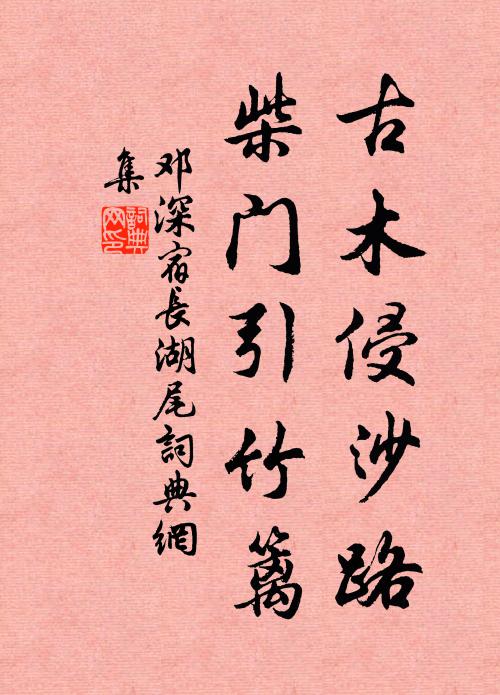 古木侵沙路
柴门引竹篱
邓深宿長湖尾詞典網
集
詞典網印